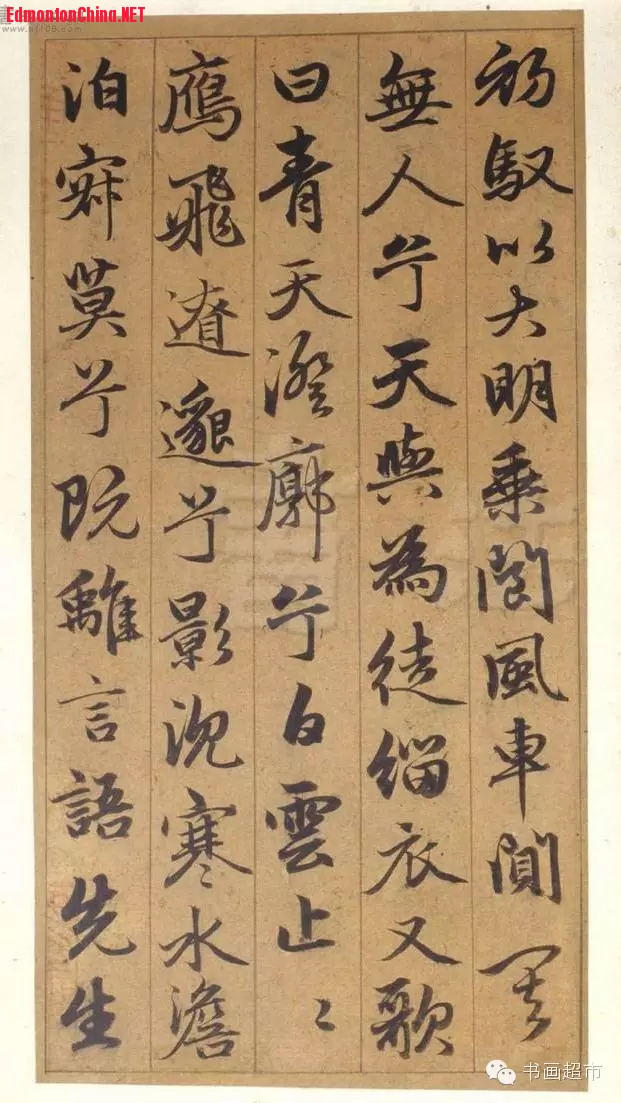 EdmontonChina.NET
初馭以大明乘閬風車閒
無人兮天與為徒緇衣又歌
曰青天澄廓兮白雲止〻
鴈飛遼邈兮影沈寒水澹
泊寂莫兮既離言語先生
书画超市